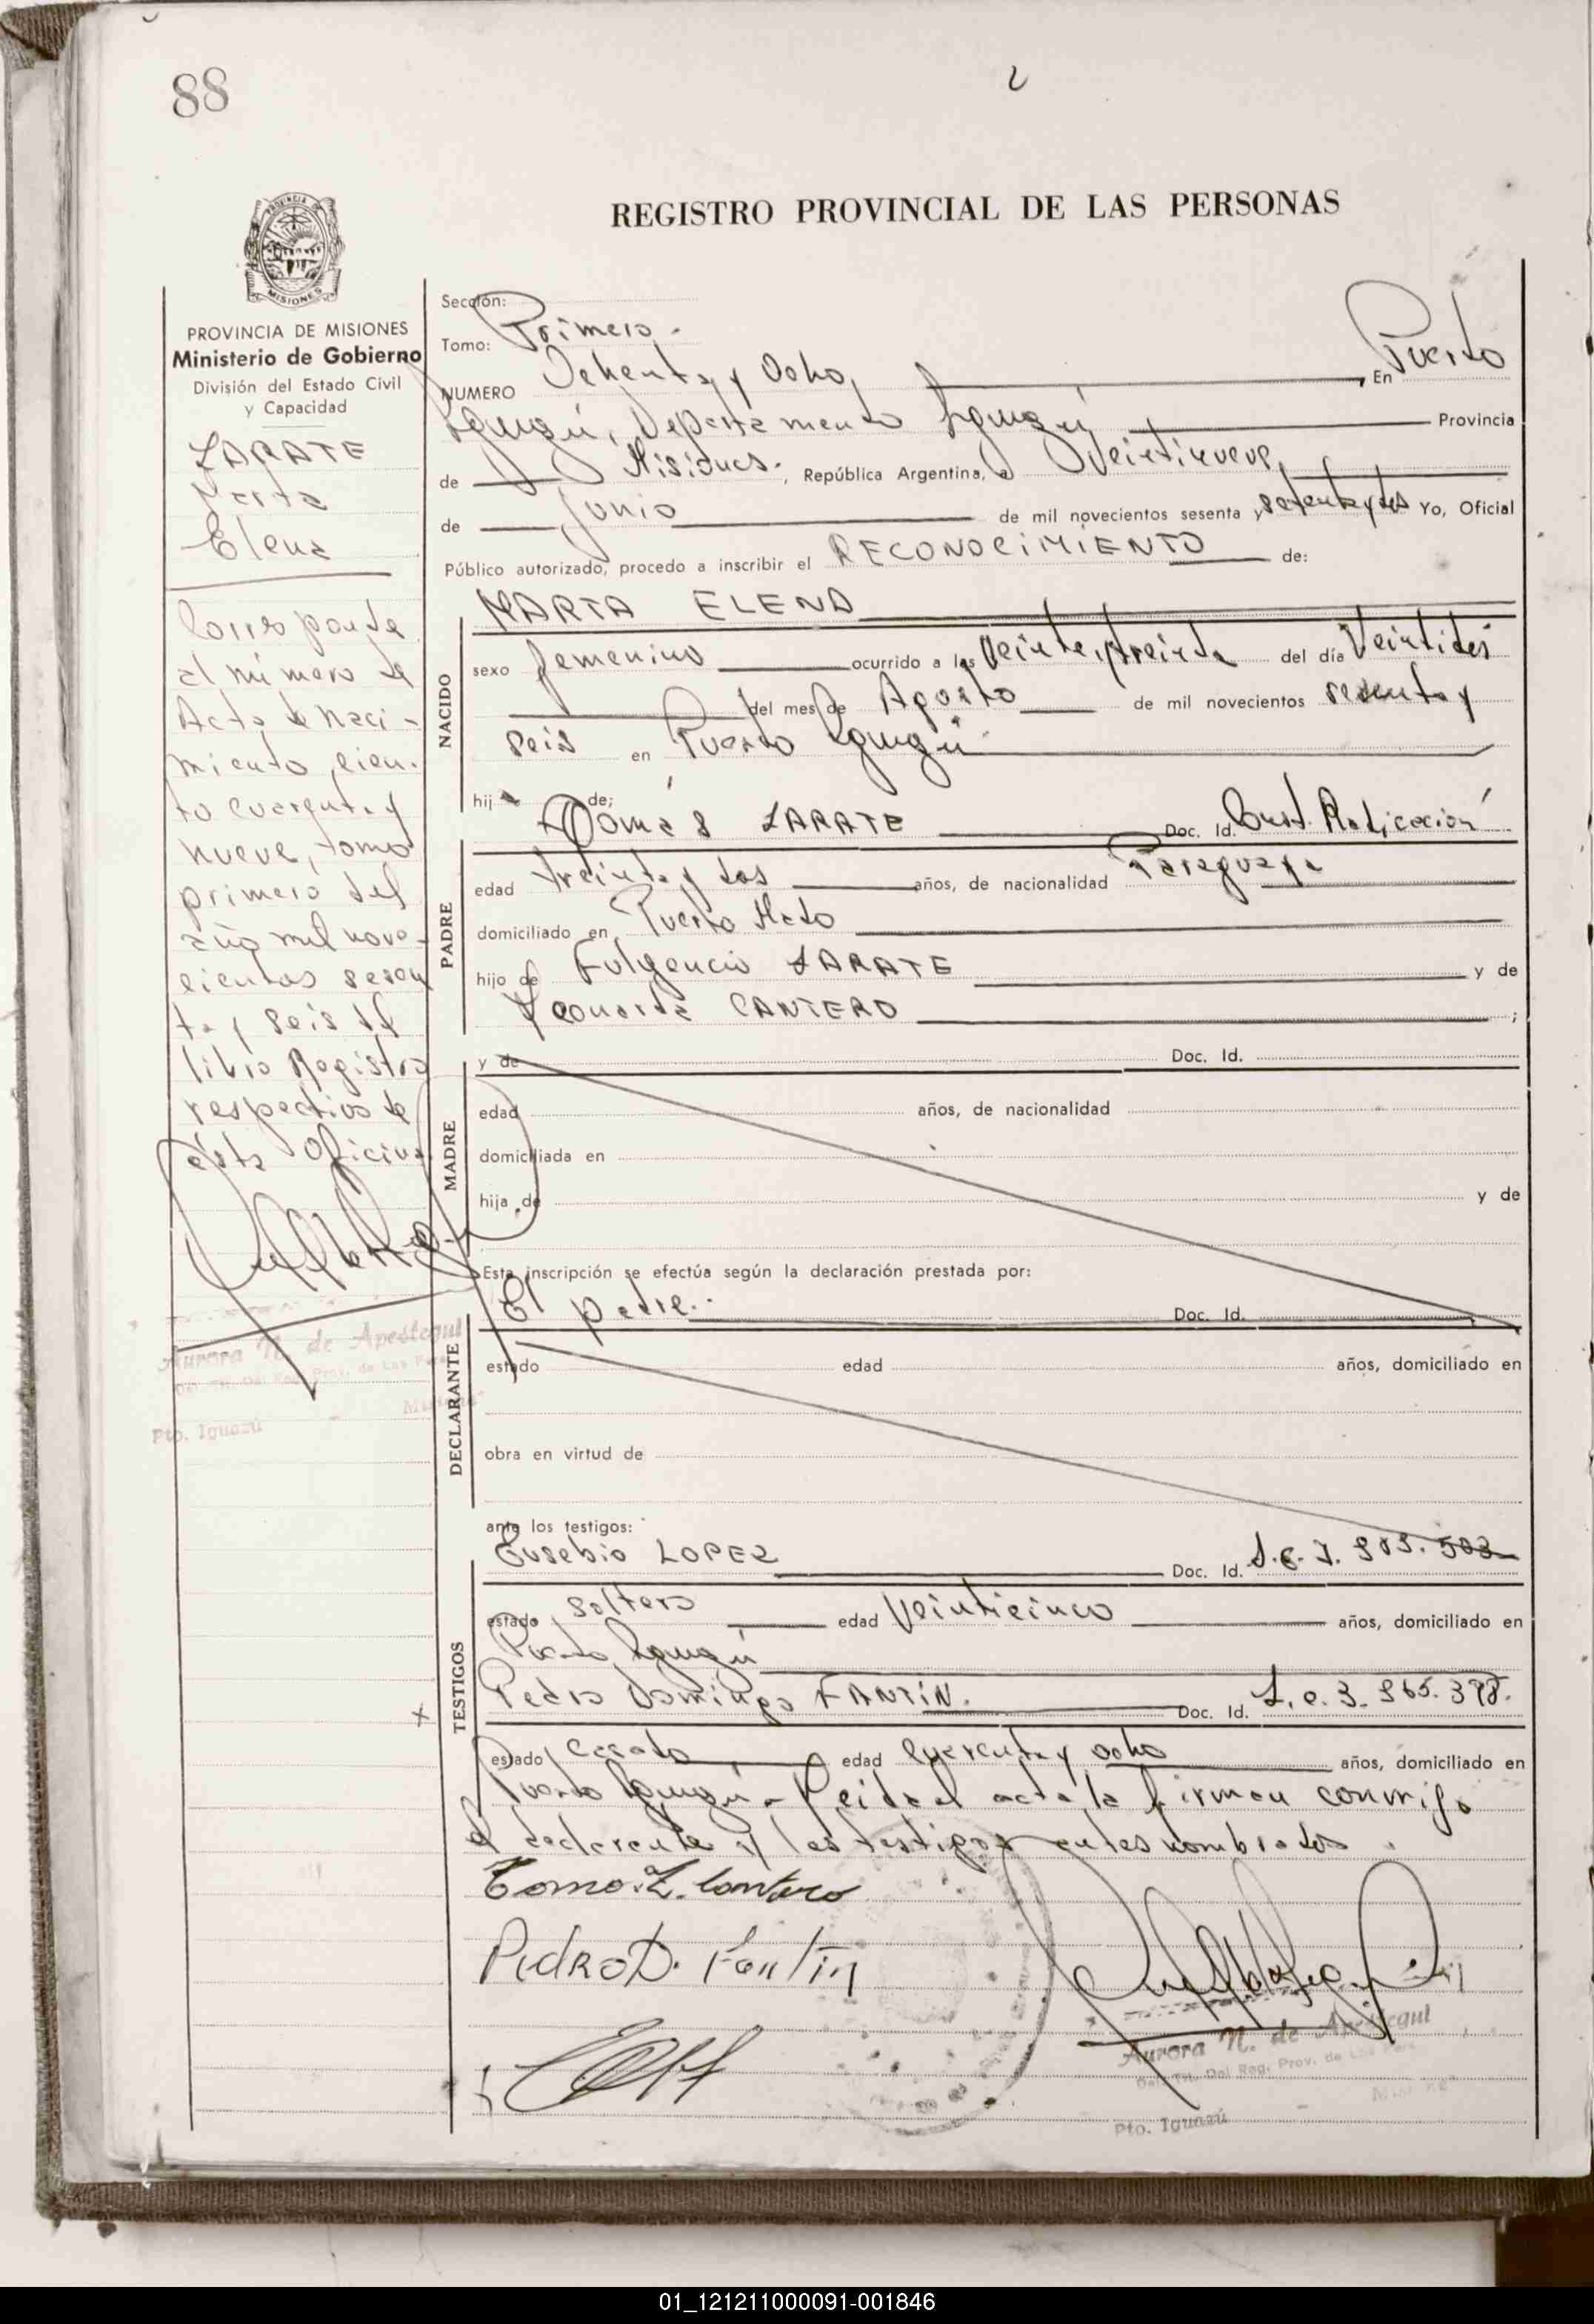 88
REGISTRO PROVINCIAL DE LAS PERSONAS
MISIONES
PROVINCIA DE MISIONES
Ministerio de Gobierno
División del Estado Civil
y Capacidad
ZARATE
Marta
Elena
Corresponde
al número de
Acta de Naci-
miento cien-
to cuarenta y
nueve, tomo
primero del
año mil nove-
cientos sesen
ta y seis del
libro Registro
respectivo de
ésta Oficina
Aurora N. de Apestegui
Pto. Iguazú
Sección:
Tomo: Primero.
NUMERO Ochenta y Ocho, En Puerto
Iguazú, Departamento Iguazú Provincia
de Misiones., República Argentina, a Veintinueve,
de Junio de mil novecientos sesenta y setenta y dos Yo, Oficial
Público autorizado, procedo a inscribir el RECONOCIMIENTO de:
MARTA ELENA
NACIDO
sexo femenino ocurrido a las Veinte, treinta del día Veintidós
del mes de Agosto de mil novecientos sesenta y
seis en Puerto Iguazú
hij de;
PADRE
Tomás ZARATE Doc. Id. Const. Radicación
edad treinta y dos años, de nacionalidad Paraguaya
domiciliado en Puerto Mado
hijo de Fulgencio ZARATE y de
Leonarda CANTERO ;
MADRE
y de Doc. Id.
edad años, de nacionalidad
domiciliada en
hija de y de
Esta inscripción se efectúa según la declaración prestada por:
El padre.- Doc. Id.
DECLARANTE
estado edad años, domiciliado en
obra en virtud de
ante los testigos:
TESTIGOS
Eusebio LOPEZ Doc. Id.
estado soltero edad Veinticinco años, domiciliado en
Puerto Iguazú
Pedro Domingo FANTIN. Doc. Id.
estado casado edad cuarenta y ocho años, domiciliado en
Puerto Iguazú - Leida el acta la firman conmigo
el declarante y los testigos antes nombrados
Tomas Z. Cantero
Pedro D. Fantin
Aurora N. de Apestegui
Del. Tit. Del Reg. Prov. de Las Pers.
Pto. Iguazú
01_121211000091-001846